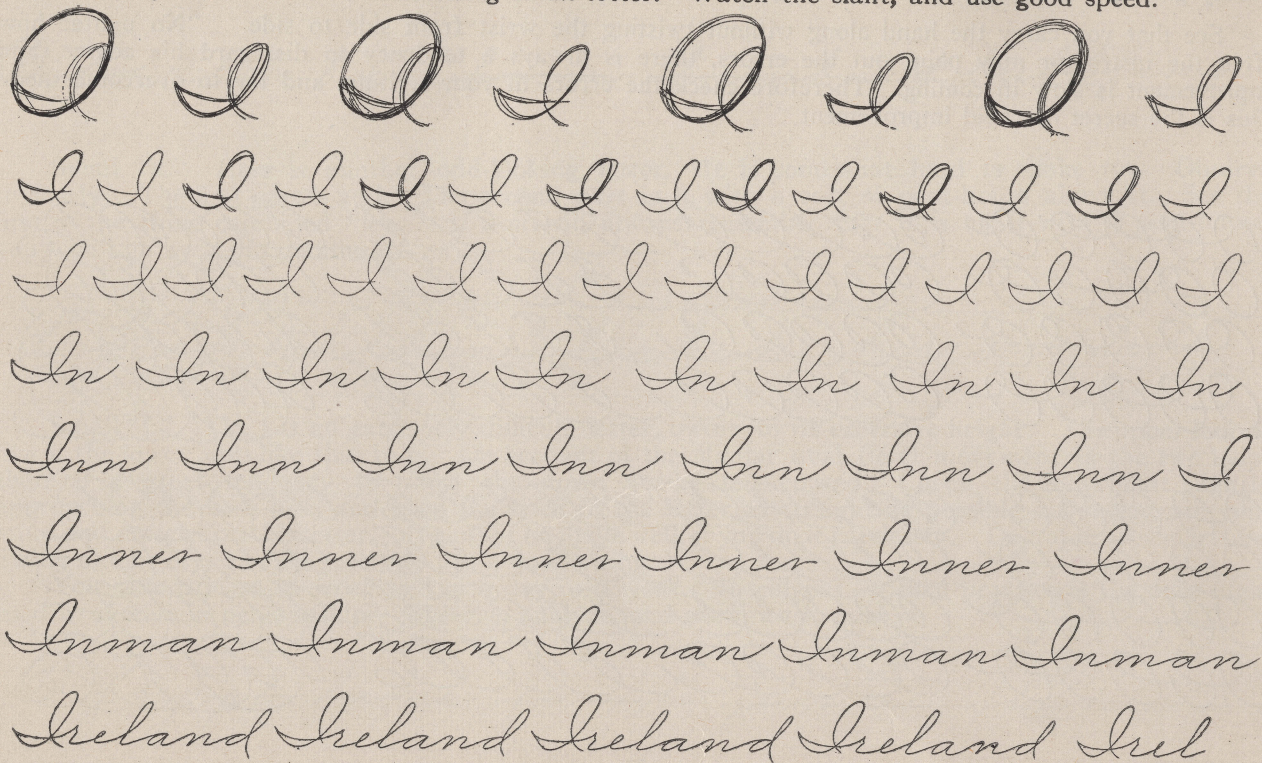 Watch the slant, and use good speed.
I I I I I I I I
I I I I I I I I I I I I I I
I I I I I I I I I I I I I I I
In In In In In In In In In In
Inn Inn Inn Inn Inn Inn Inn I
Inner Inner Inner Inner Inner Inner
Inman Inman Inman Inman Inman
Ireland Ireland Ireland Ireland Irel